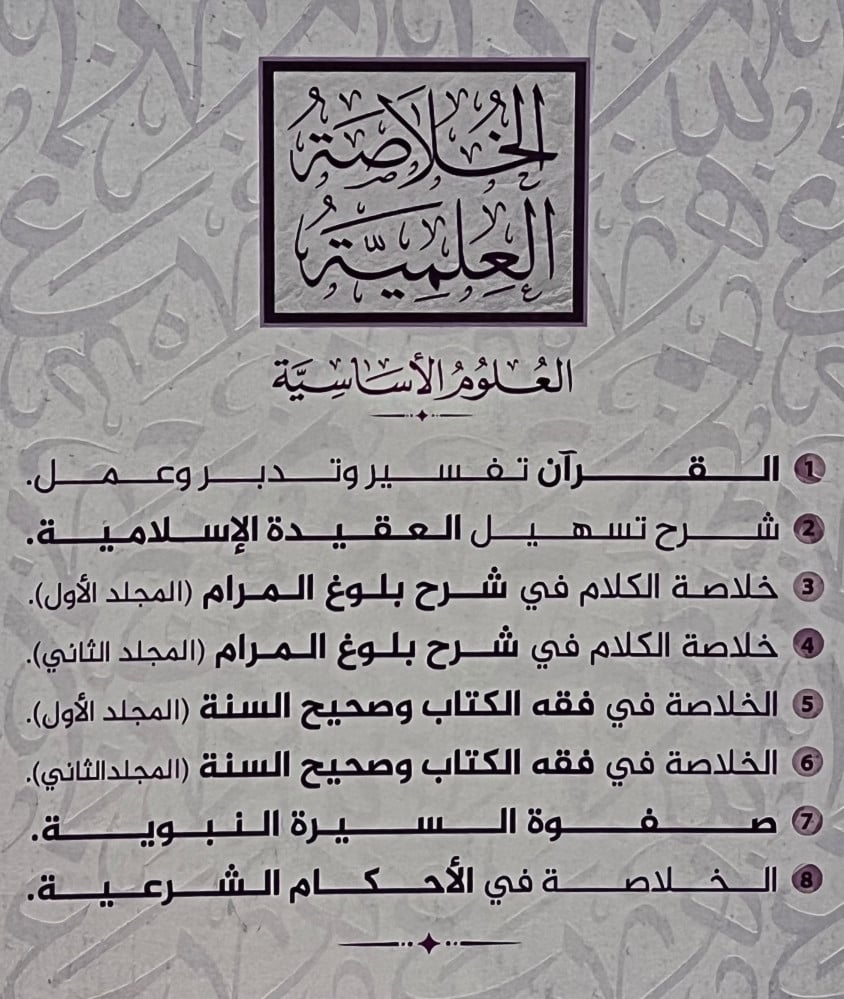 الخُلَاصَةُ
العِلمِيَّةُ
العُلُومُ الأَسَاسِيَّة
1 القرآن تفسير وتدبر وعمل.
2 شرح تسهيل العقيدة الإسلامية.
3 خلاصة الكلام في شرح بلوغ المرام (المجلد الأول).
4 خلاصة الكلام في شرح بلوغ المرام (المجلد الثاني).
5 الخلاصة في فقه الكتاب وصحيح السنة (المجلد الأول).
6 الخلاصة في فقه الكتاب وصحيح السنة (المجلد الثاني).
7 صفوة السيرة النبوية.
8 الخلاصة في الأحكام الشرعية.